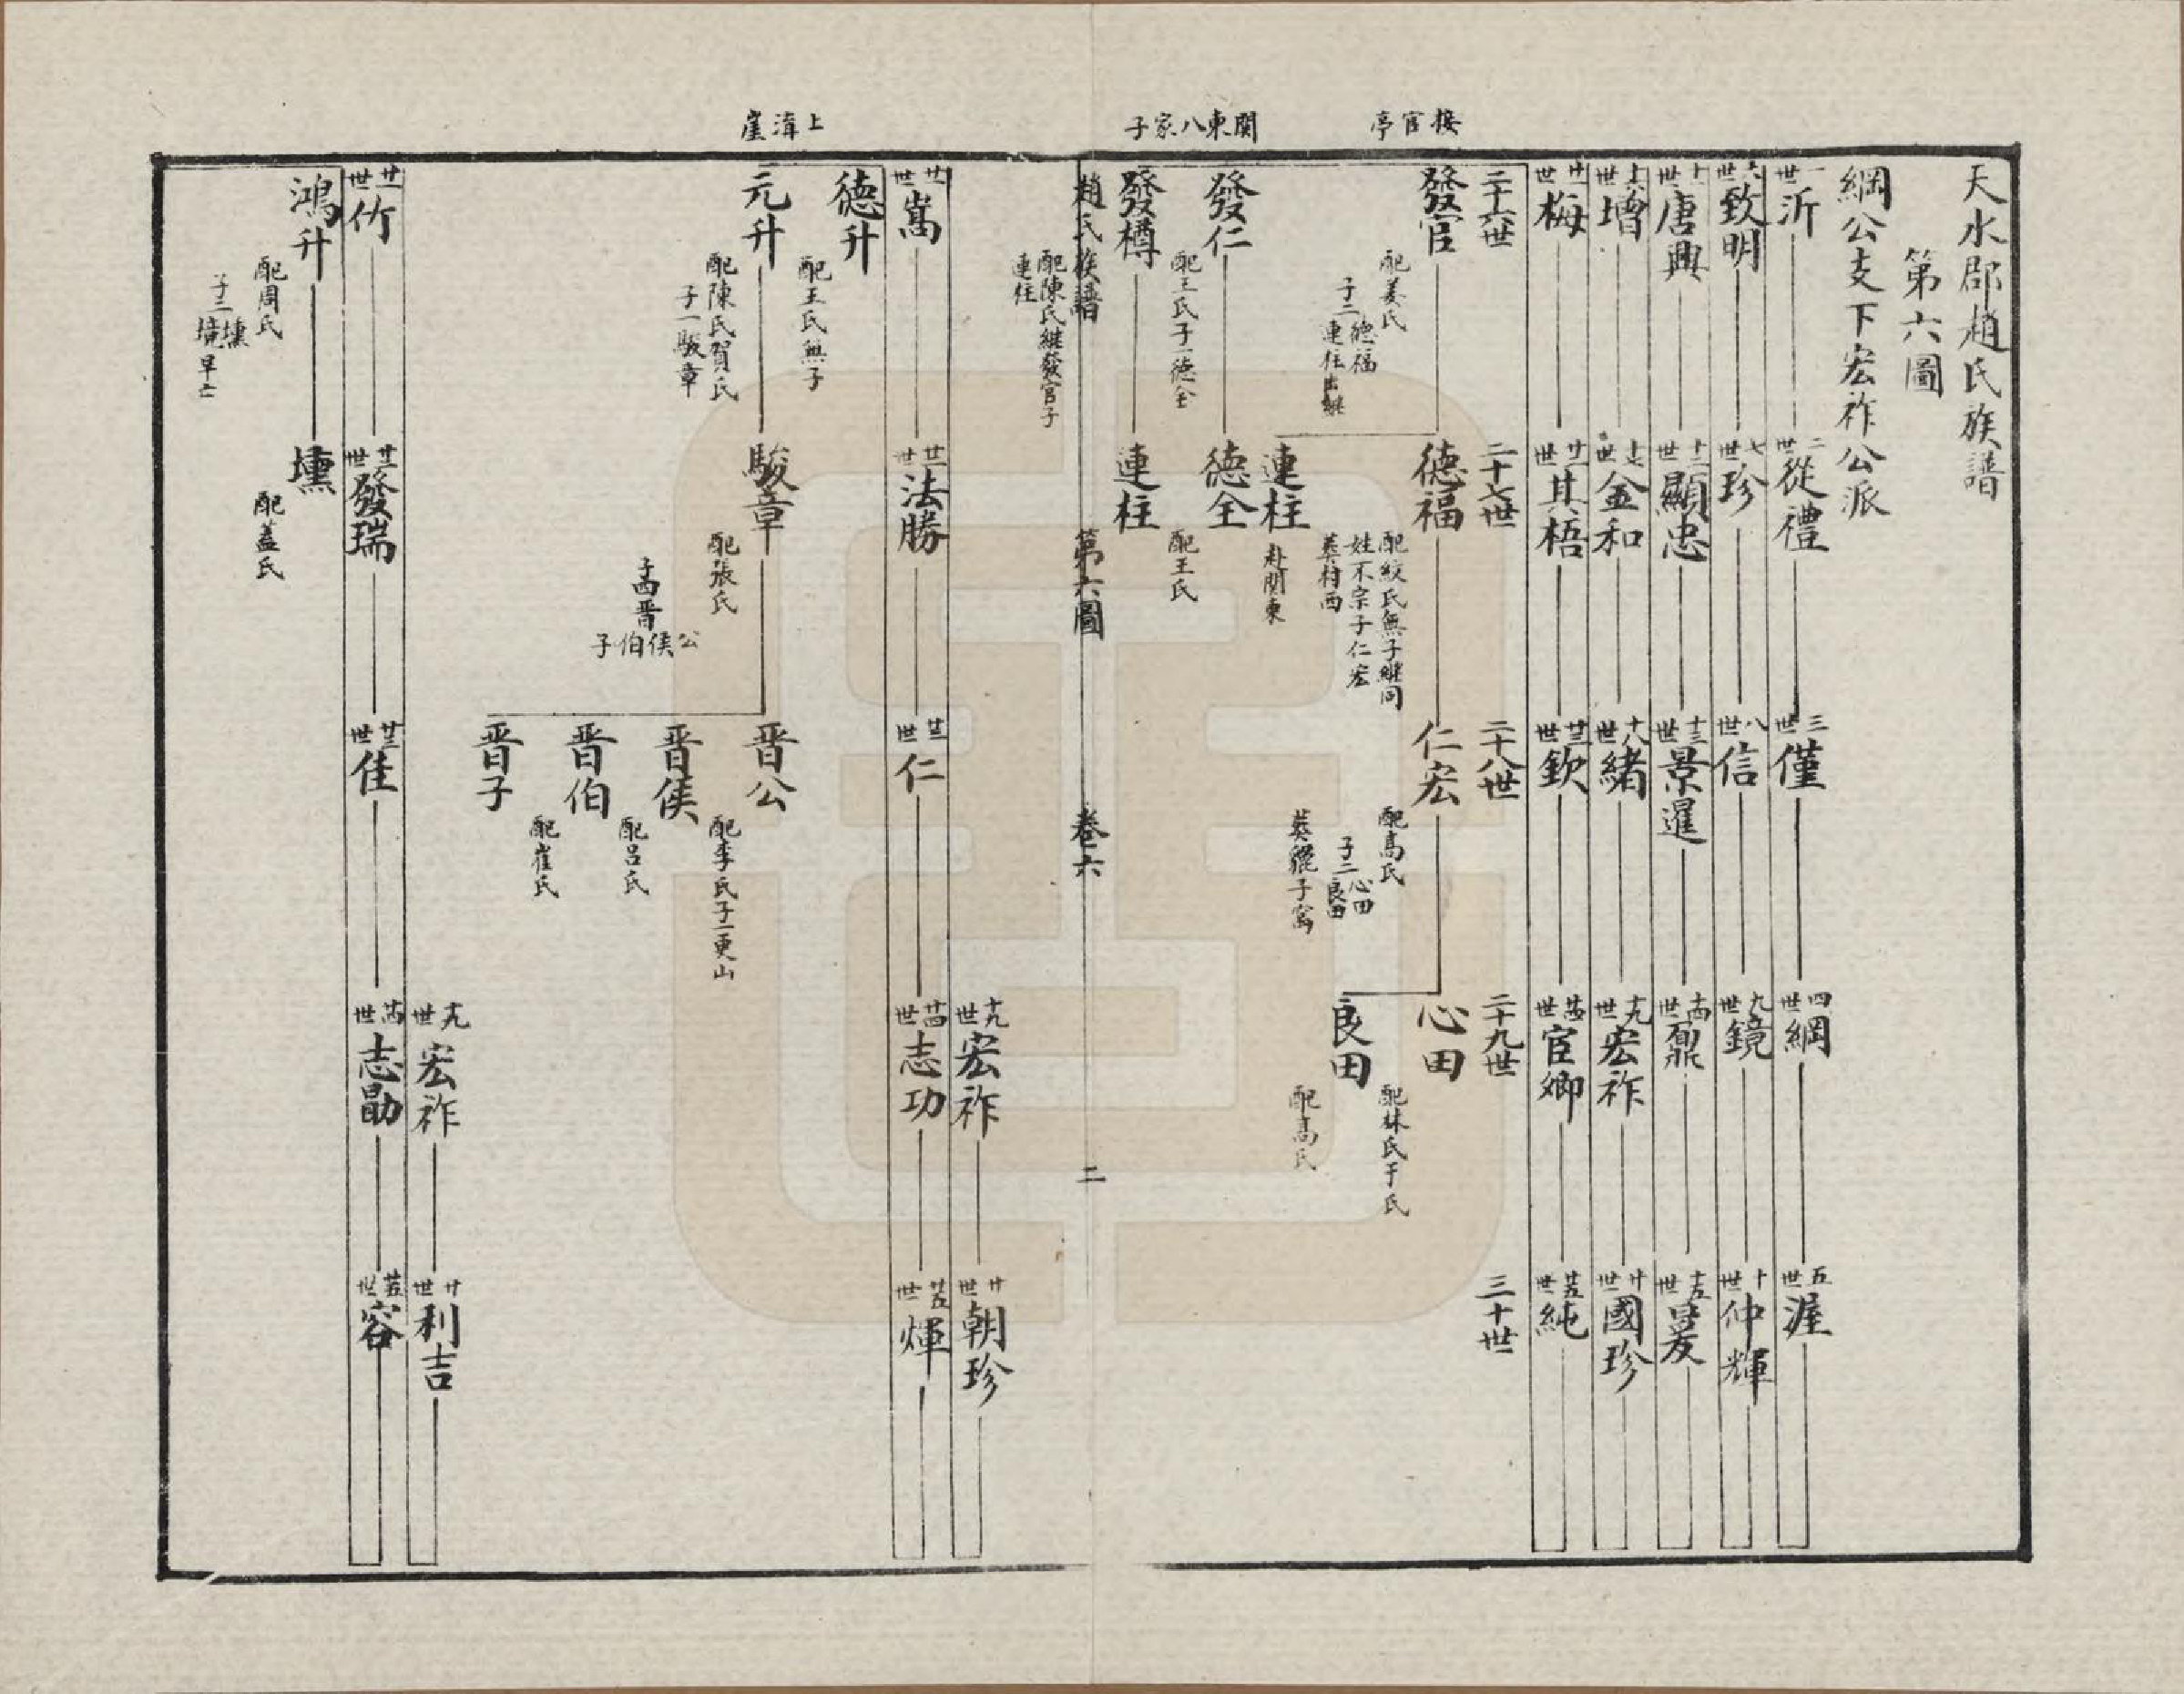 天水郡趙氏族譜
第六圖
綱公支下宏祚公派
一世 沂 二世 從禮 三世 僅 四世 綱 五世 渥
六世 致明 七世 珍 八世 信 九世 鏡 十世 仲輝
十一世 唐興 十二世 顯忠 十三世 景暹 十四世 鼐 十五世
十六世 增 十七世 金和 十八世 緒 十九世 宏祚 廿世 國珍
廿一世 梅 廿二世 其梧 廿三世 欽 廿四世 宦卿 廿五世 純
二十六世 二十七世 二十八世 二十九世 三十世
接官亭
發官 德福 仁宏 心田
配姜氏
子二 德福 連柱出繼
配綬氏無子繼同
姓不宗子仁宏
葬村西
配高氏
子二 心田 良田
配林氏于氏
連柱 良田
赴關東
配高氏
關東八家子
發仁 德全
配王氏子一德全
配王氏
發樽 連柱
配陳氏繼發官子
連柱
趙氏族譜 第六圖 卷六 二
十九世 宏祚 廿世 朝珍
廿一世 嵩 廿二世 法勝 廿三世 仁 廿四世 志功 廿五世 煇
德升
配王氏無子
上溝崖
元升 駿章 晋公
配陳氏賀氏
子一駿章
配張氏
子四晋 公侯伯子
配李氏子一更山
晋侯
配呂氏
晋伯
配崔氏
晋子
十九世 宏祚 廿世 利吉
廿一世 竹 廿二世 發瑞 廿三世 佳 廿四世 志勖 廿五世 容
鴻升 壎
配周氏
子二 壎 境早亡
配蓋氏